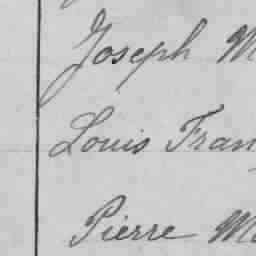 Joseph M
Louis Fran
Pierre Ma